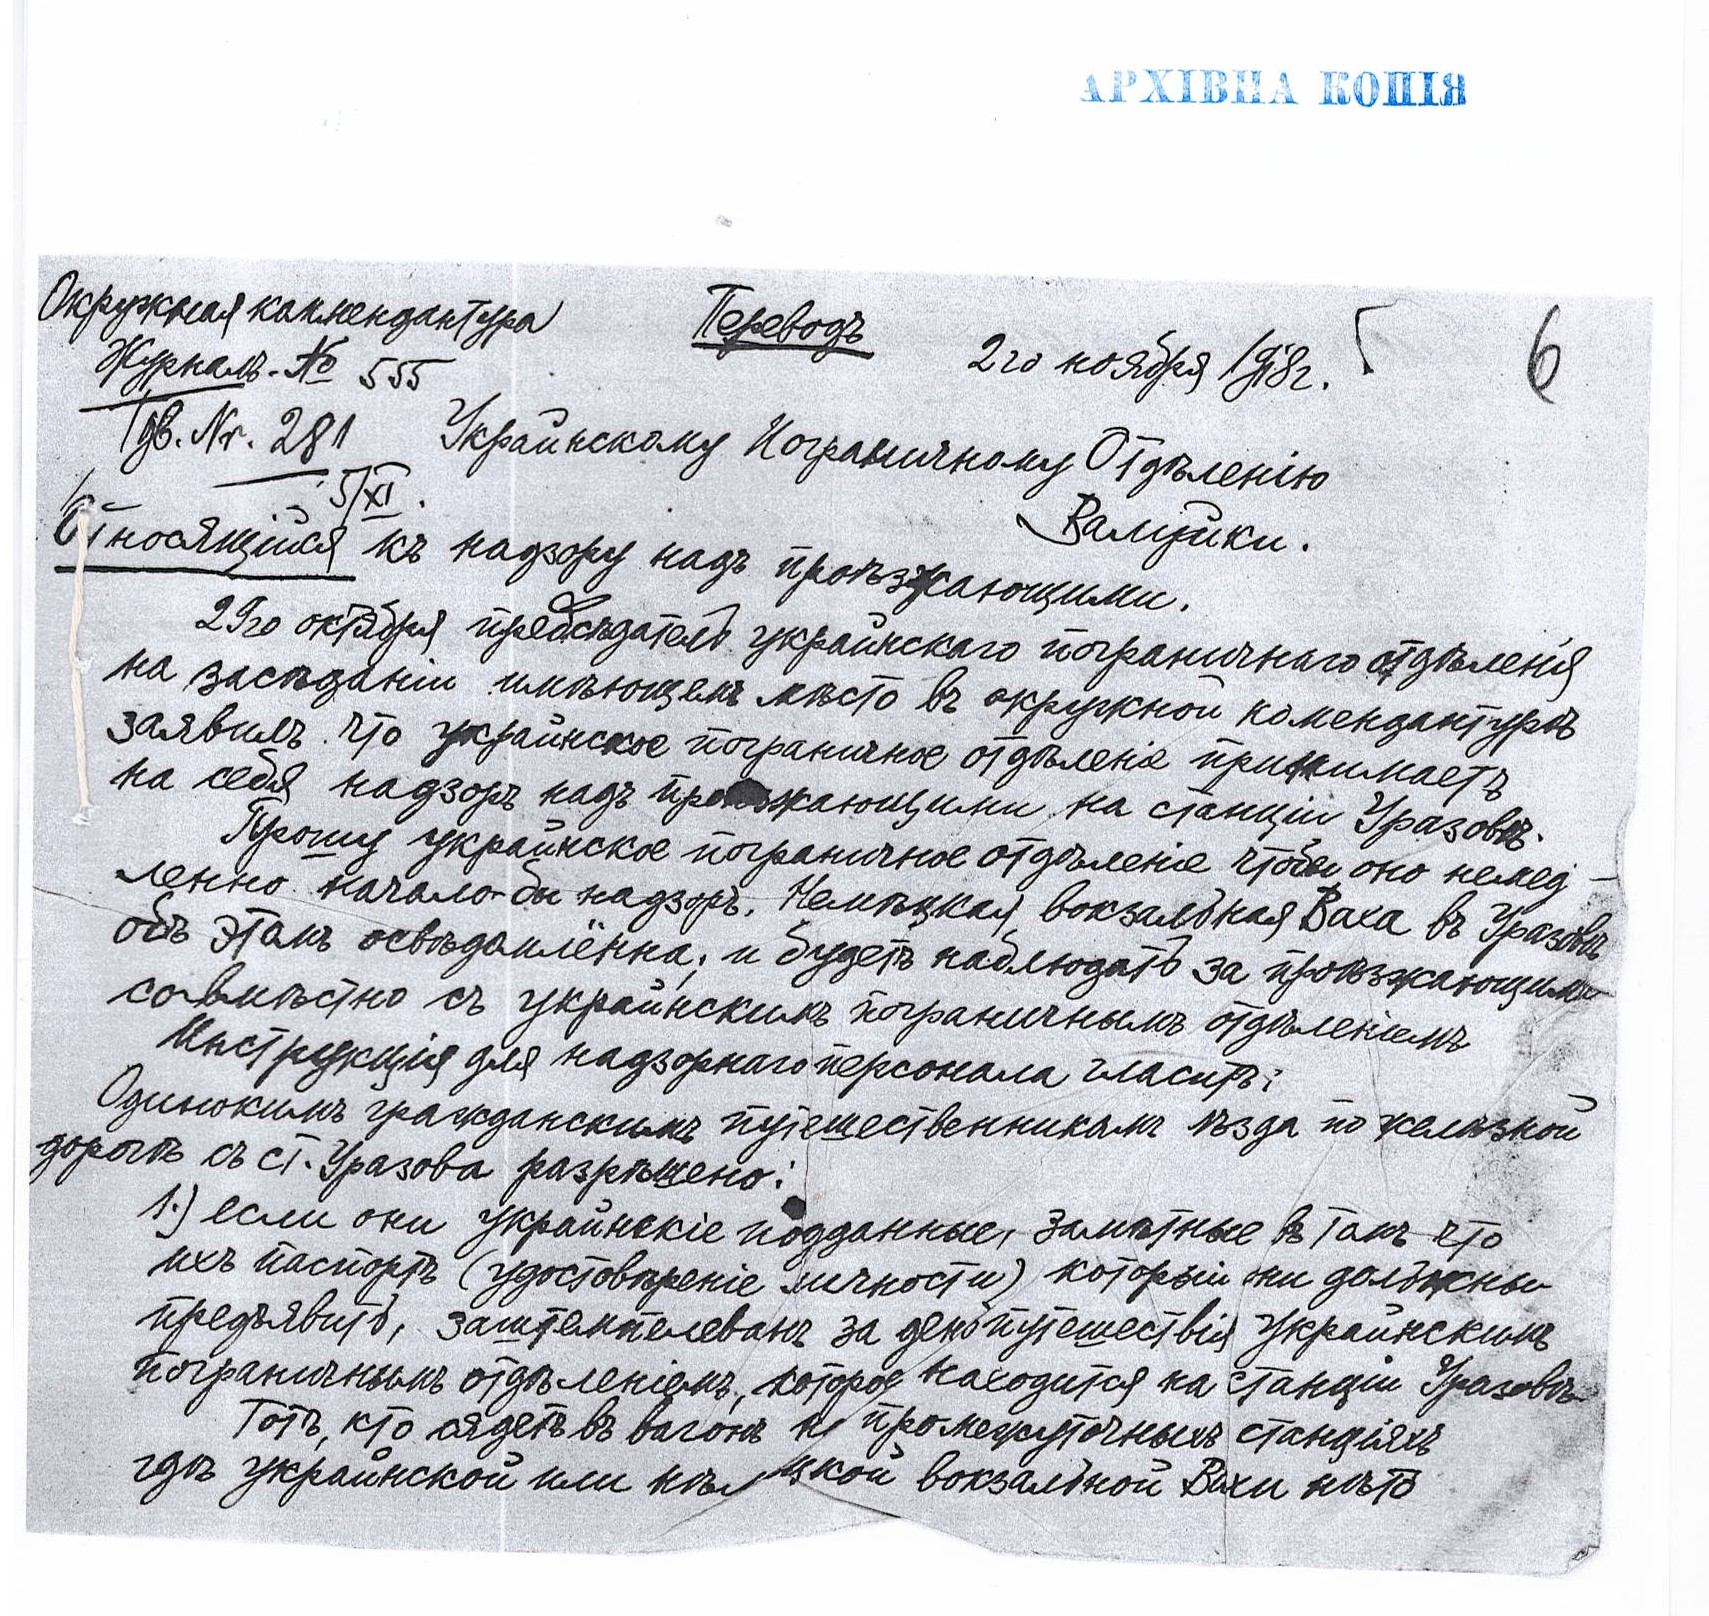 АРХІВНА КОПІЯ
Окружная каммендантура
Переводъ
2го ноября 1918г.
6
Журналъ. № 555
Nr. 281
5/XI.
Украинскому Пограничному Отдѣленію
Валуйки.
Относящійся къ надзору надъ проѣзжающими.
29го октября предсѣдатель украинскаго пограничнаго отдѣленія
на засѣданіи имѣющемъ мѣсто въ окружной комендантурѣ
заявилъ что украинское пограничное отдѣленіе принимаетъ
на себя надзоръ надъ проѣзжающими на станціи Уразовѣ.
Прошу украинское пограничное отдѣленіе чтобы оно немед-
ленно начало-бы надзоръ. Немѣцкая вокзальная Ваха въ Уразовѣ
объ этомъ освѣдомлённа, и будетъ наблюдать за проѣзжающими
совмѣстно съ украинскимъ пограничнымъ отдѣленіемъ
Инструкція для надзорнаго персонала гласитъ:
Одинокимъ гражданскимъ путешественникамъ ѣзда по желѣзной
дорогѣ съ ст. Уразова разрѣшено:
1.) если они украинскіе подданные, замѣтные въ томъ что
ихъ паспортъ (удостовѣреніе личности) который они должны
предъявить, заштемпелеванъ за день путешествія украинскимъ
пограничнымъ отдѣленіемъ, которое находится на станціи Уразовѣ
Тотъ, кто сядетъ въ вагонъ н промежуточныхъ станціяхъ
гдѣ украинской или нѣм цкой вокзальной Вахи нѣтъ